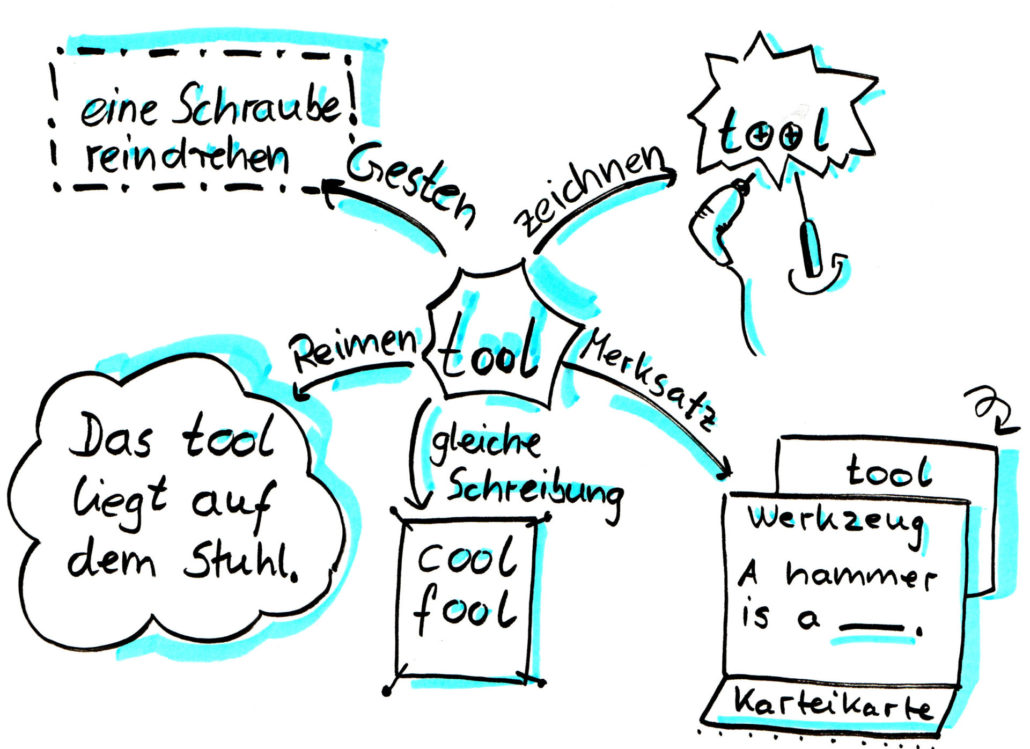 eine Schraube
reindrehen
Gesten
zeichnen
tool
tool
Reimen
Merksatz
Das tool
liegt auf
dem Stuhl.
gleiche
Schreibung
cool
fool
tool
Werkzeug
A hammer
is a ___.
Karteikarte